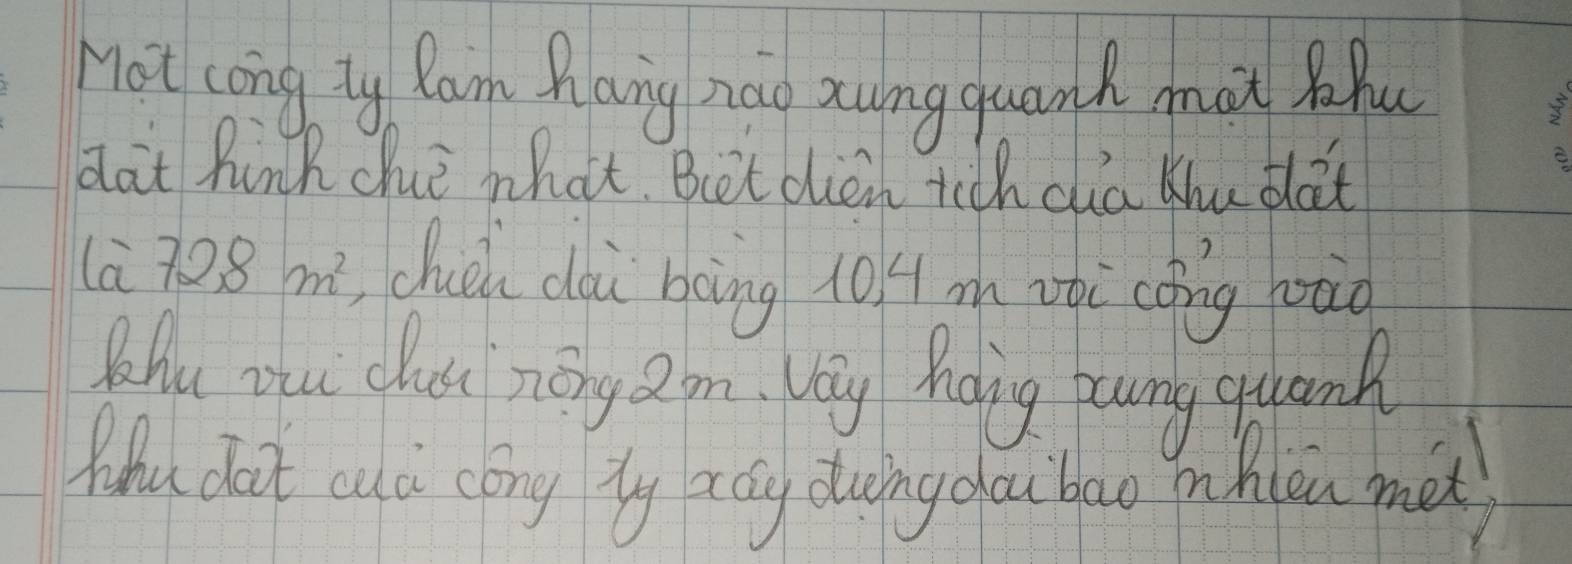 Một công ty làm hàng rào xung quanh một khu
đất hình chữ nhật. Biết diện tích của khu đất
là 728 m², chiều dài bằng 10,4 m với cổng vào
khu vui chơi rộng 2 m. Vậy hàng xung quanh
khu đất của công ty xây dựng dài bao nhiêu mét?